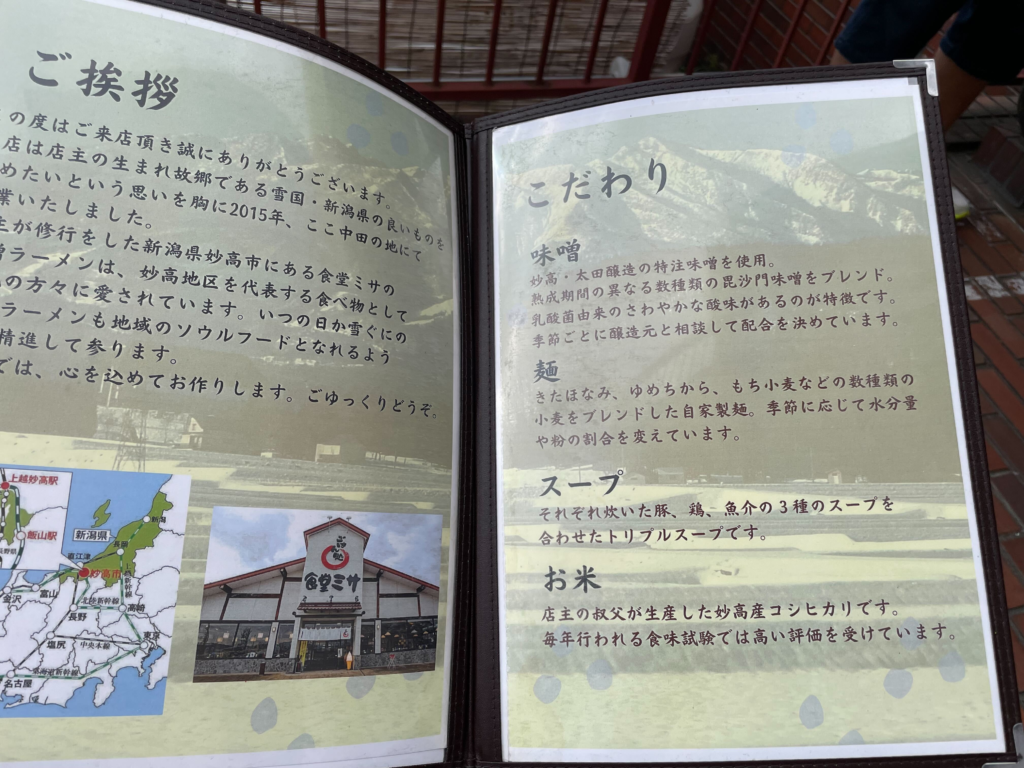 ご挨拶
の度はご来店頂き誠にありがとうございます。
店は店主の生まれ故郷である雪国・新潟県の良いものを
めたいという思いを胸に2015年、ここ中田の地にて
業いたしました。
主が修行をした新潟県妙高市にある食堂ミサの
噌ラーメンは、妙高地区を代表する食べ物として
の方々に愛されています。いつの日か雪ぐにの
ラーメンも地域のソウルフードとなれるよう
精進して参ります。
では、心を込めてお作りします。ごゆっくりどうぞ。
上越妙高駅
飯山駅
長野県
新潟県
新潟
長岡
直江津
妙高市
上越新幹線
北陸新幹線
金沢
富山
長野
高崎
塩尻
中央本線
東京
東海道新幹線
名古屋
食堂ミサ
こだわり
味噌
妙高・太田醸造の特注味噌を使用。
熟成期間の異なる数種類の毘沙門味噌をブレンド。
乳酸菌由来のさわやかな酸味があるのが特徴です。
季節ごとに醸造元と相談して配合を決めています。
麺
きたほなみ、ゆめちから、もち小麦などの数種類の
小麦をブレンドした自家製麺。季節に応じて水分量
や粉の割合を変えています。
スープ
それぞれ炊いた豚、鶏、魚介の3種のスープを
合わせたトリプルスープです。
お米
店主の叔父が生産した妙高産コシヒカリです。
毎年行われる食味試験では高い評価を受けています。